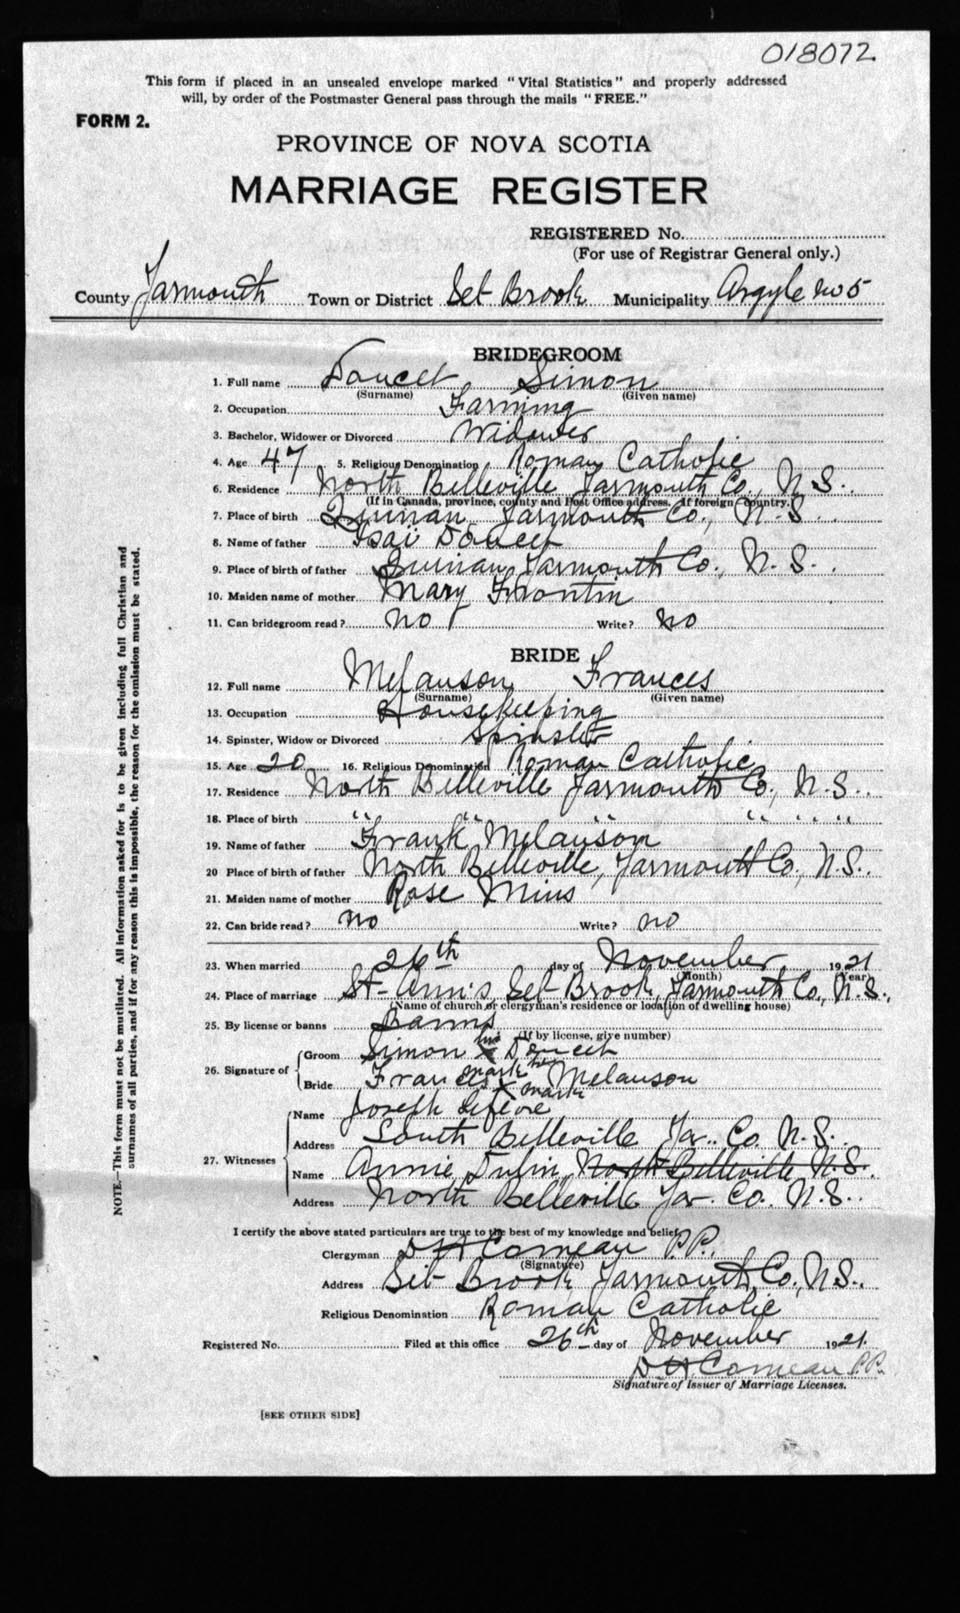 018072
This form if placed in an unsealed envelope marked "Vital Statistics" and properly addressed
will, by order of the Postmaster General pass through the mails "FREE."
FORM 2.
PROVINCE OF NOVA SCOTIA
MARRIAGE REGISTER
REGISTERED No.
(For use of Registrar General only.)
County Yarmouth Town or District Eel Brook Municipality Argyle no 5
BRIDEGROOM
1. Full name Doucet Simon
(Surname) (Given name)
2. Occupation Farming
3. Bachelor, Widower or Divorced Widower
4. Age 47 5. Religious Denomination Roman Catholic
6. Residence North Belleville Yarmouth Co., N.S.
(If in Canada, province, county and Post Office address. If foreign country.)
7. Place of birth Quinan Yarmouth Co., N.S.
8. Name of father Isai Doucet
9. Place of birth of father Quinan Yarmouth Co., N.S.
10. Maiden name of mother Mary
11. Can bridegroom read? no Write? no
BRIDE
12. Full name Melanson Frances
(Surname) (Given name)
13. Occupation Housekeeping
14. Spinster, Widow or Divorced Spinster
15. Age 20 16. Religious Denomination Roman Catholic
17. Residence North Belleville Yarmouth Co., N.S.
18. Place of birth " " " " " "
19. Name of father Frank Melanson
20 Place of birth of father North Belleville, Yarmouth Co., N.S.
21. Maiden name of mother Rose Mius
22. Can bride read? no Write? no
23. When married 26th day of November 1921
(Month) (Year)
24. Place of marriage St-Ann's, Eel Brook, Yarmouth Co., N.S.,
(Name of church or clergyman's residence or location of dwelling house)
25. By license or banns Banns
(If by license, give number)
26. Signature of Groom Simon his x mark Doucet
Bride Frances her x mark Melanson
27. Witnesses Name Joseph Lefevre
Address South Belleville Yar. Co. N.S.
Name Annie Dulin North Belleville N.S.
Address North Belleville Yar. Co. N.S.
I certify the above stated particulars are true to the best of my knowledge and belief.
Clergyman D H Comeau P.P.
(Signature)
Address Eel Brook Yarmouth Co., N.S.
Religious Denomination Roman Catholic
Registered No. Filed at this office 26th day of November 1921
D H Comeau P.P.
Signature of Issuer of Marriage Licenses.
[SEE OTHER SIDE]
NOTE.—This form must not be mutilated. All information asked for is to be given including full Christian and
surnames of all parties, and if for any reason this is impossible, the reason for the omission must be stated.